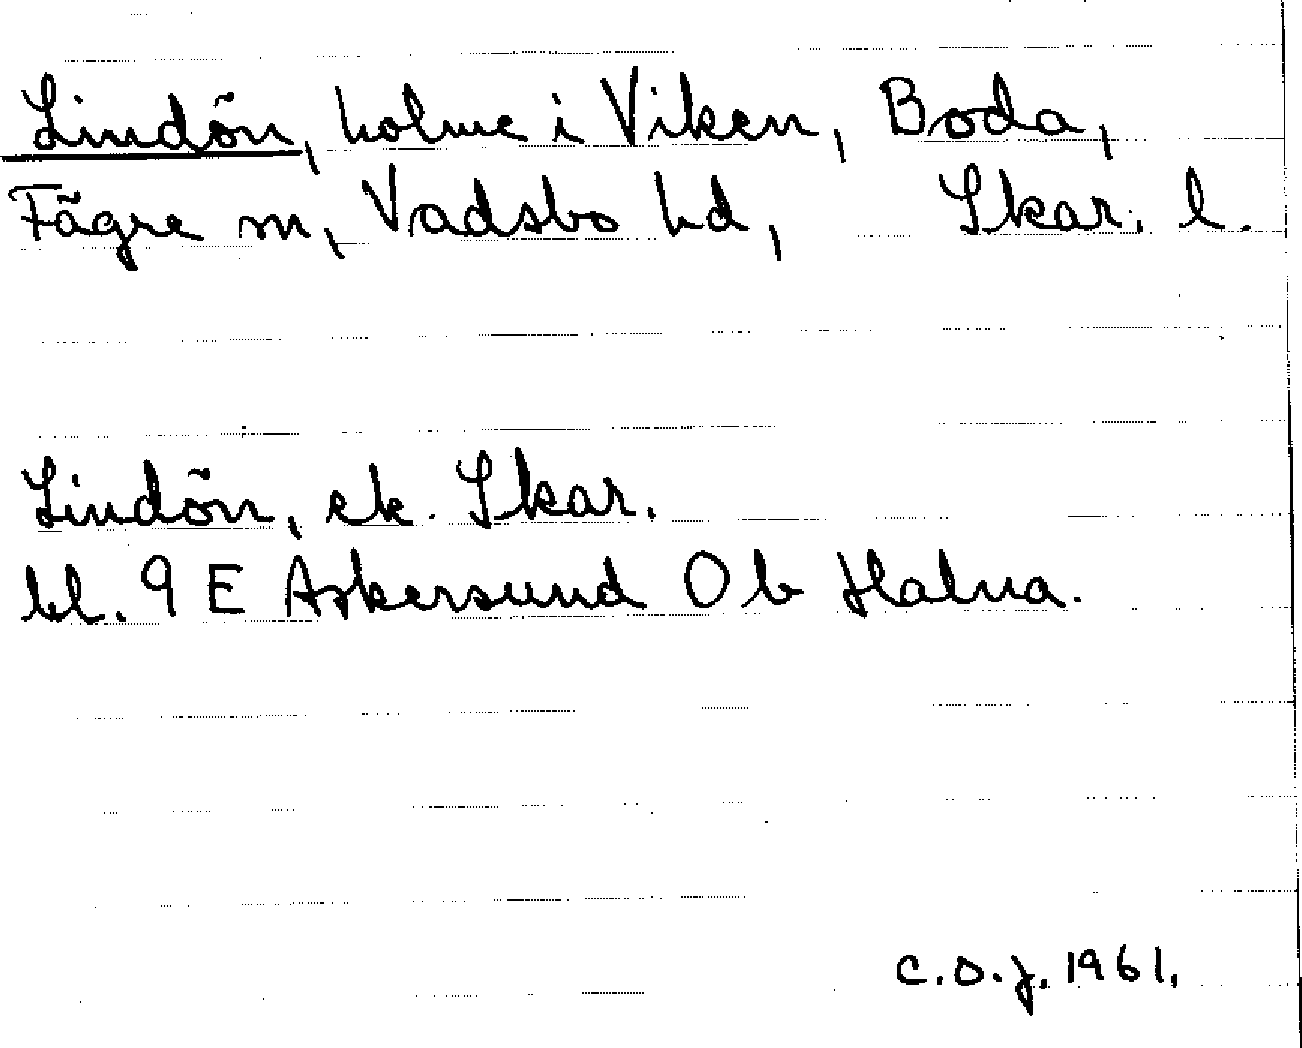 Lindön, holme i Viken, Boda,
Fägre sn, Vadsbo hd, Skar. l.
Lindön, ek. Skar.
bl. 9 E Askersund O b Halna.
C.O.J. 1961.